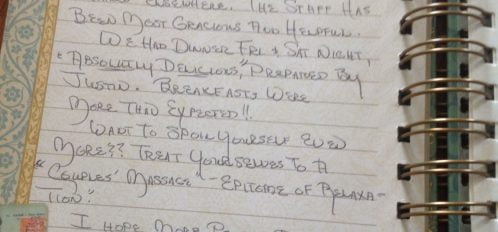 ELSEWHERE. THE STAFF HAS
BEEN MOST GRACIOUS AND HELPFUL.
WE HAD DINNER FRI & SAT NIGHT,
"ABSOLUTLY DELICIOUS," PREPARED BY
JUSTIN. BREAKFASTS WERE
MORE THAN EXPECTED!!
WANT TO SPOIL YOURSELF EVEN
MORE?? TREAT YOURSELVES TO A
"COUPLES' MASSAGE" - EPITOME OF RELAXA-
TION."
I HOPE MORE